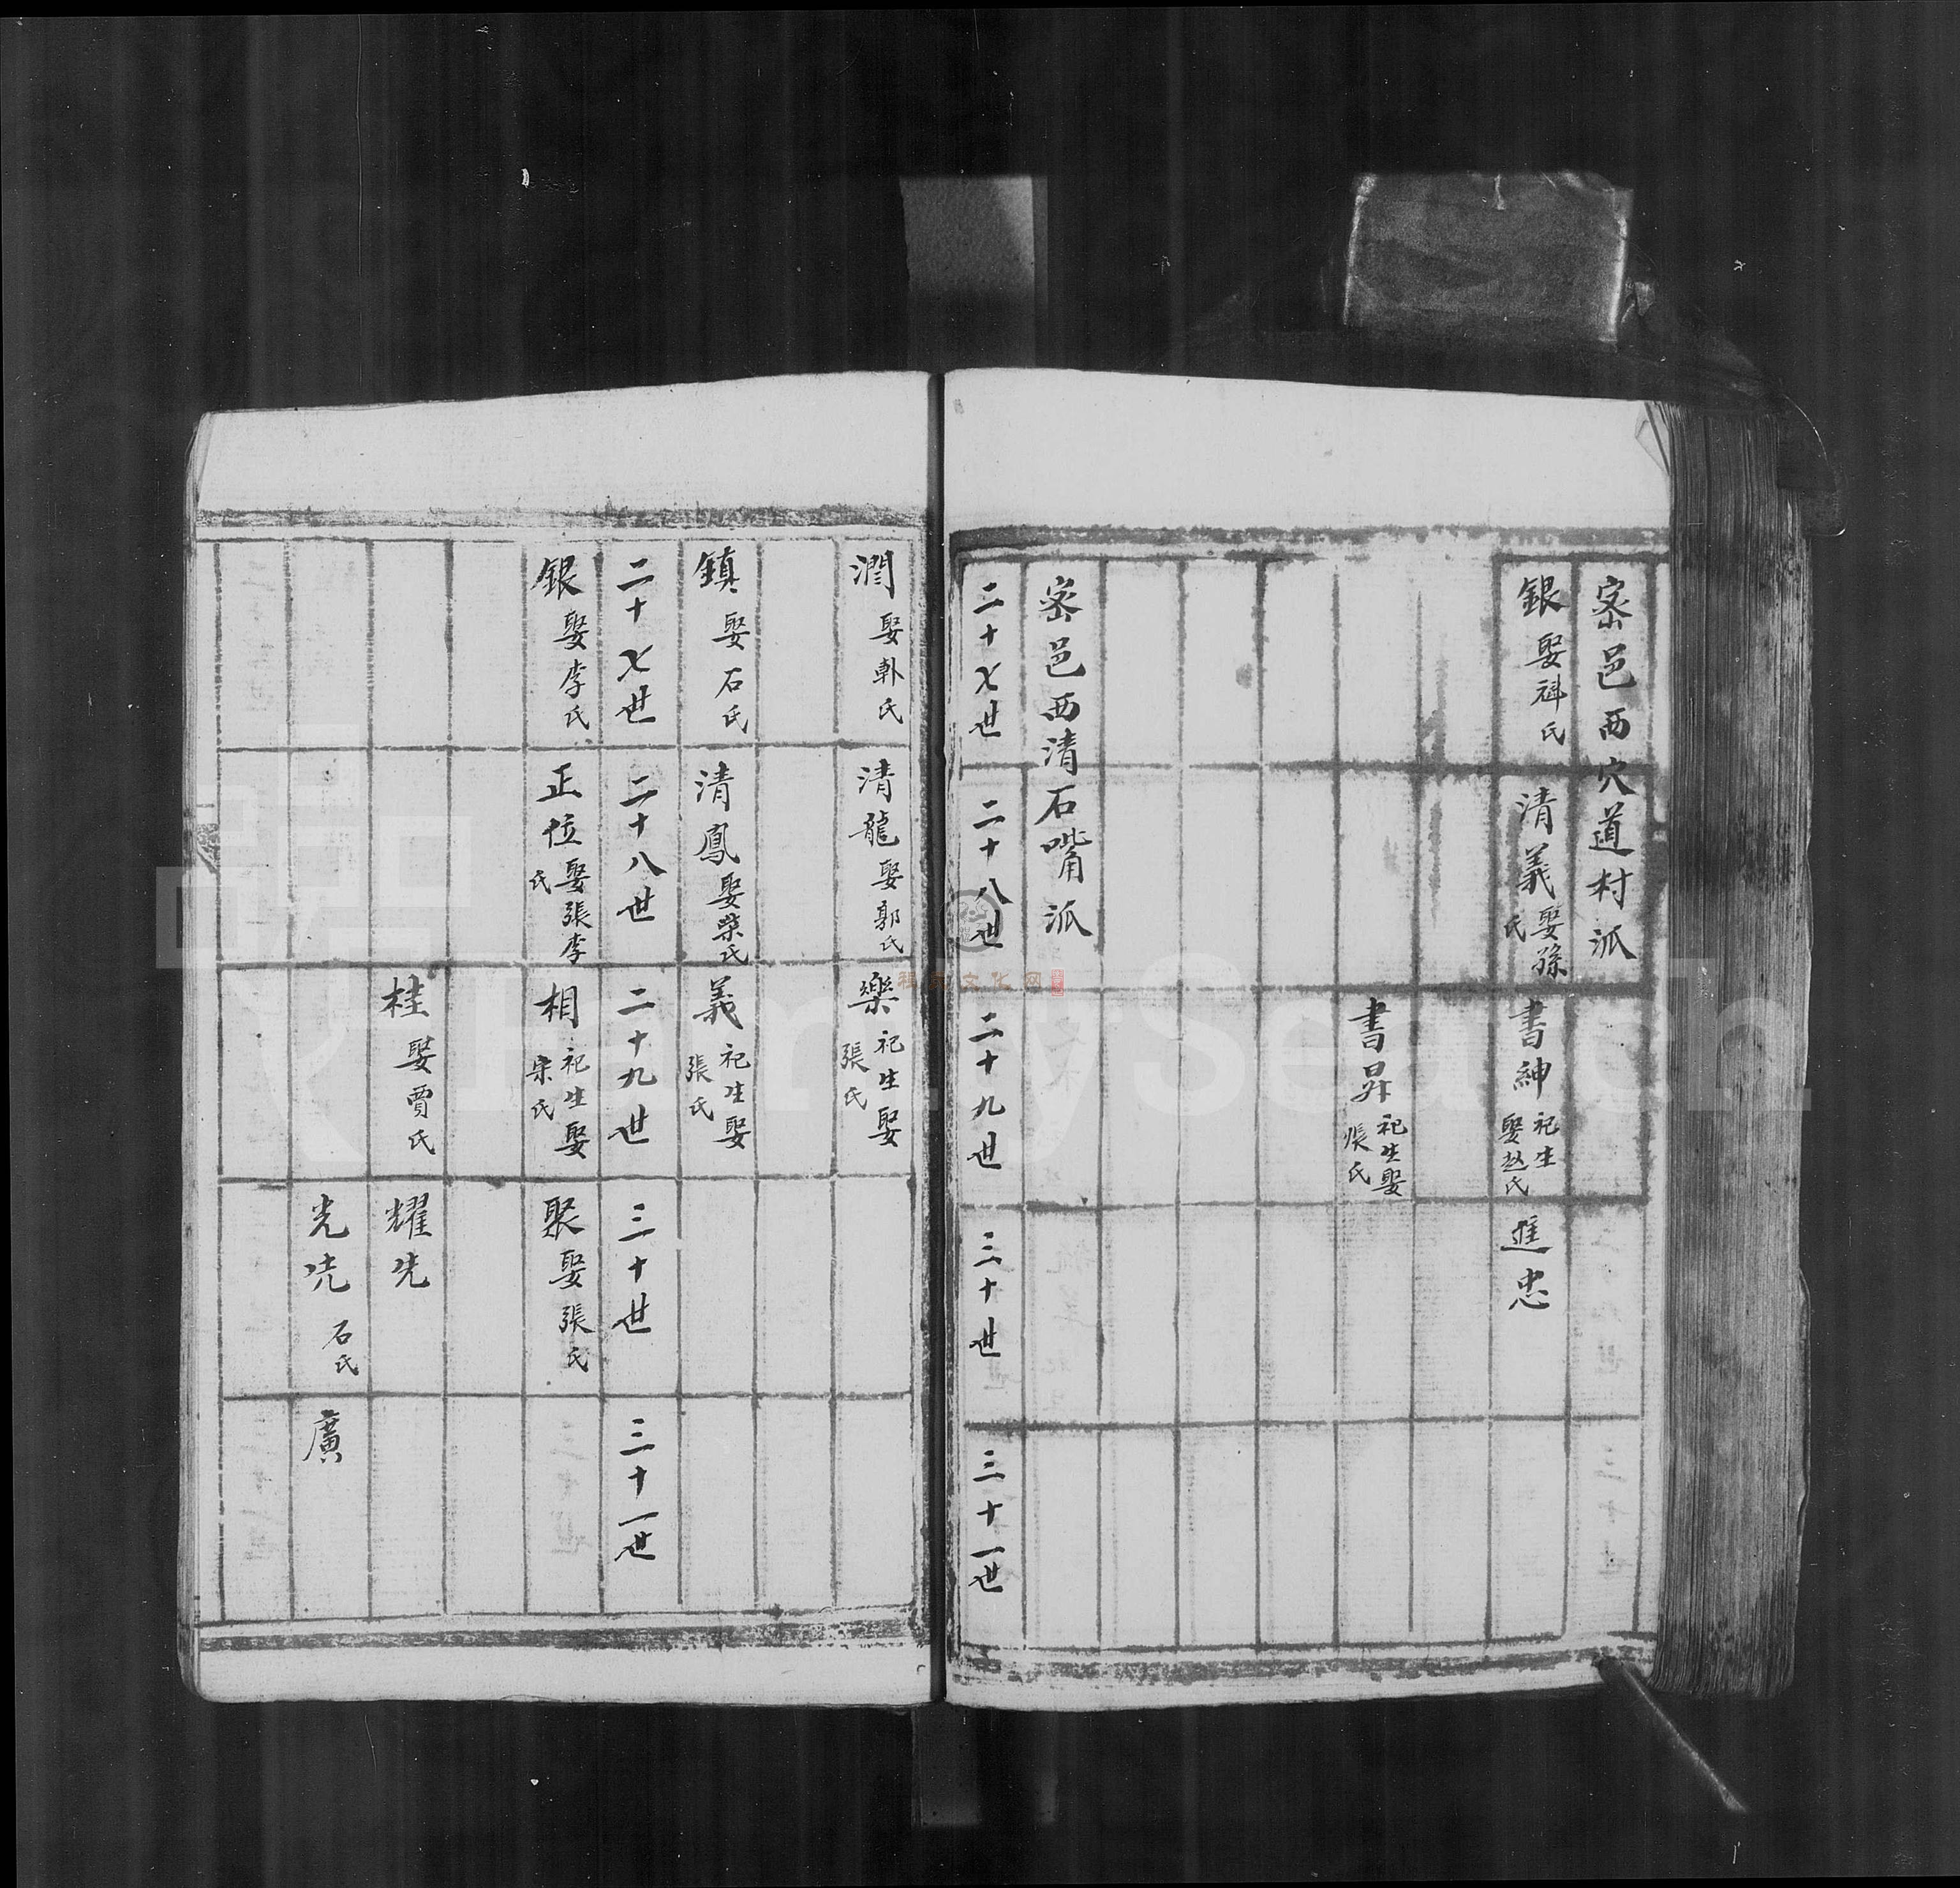 密邑西穴道村派
銀 娶 氏
清義 娶孫氏
書紳 祀生娶赵氏
進忠
書昇 祀生娶張氏
密邑西清石嘴派
二十七世
二十八世
二十九世
三十世
三十一世
潤 娶 氏
清龍 娶郭氏
樂 祀生娶張氏
鎮 娶石氏
清鳳 娶柴氏
義 祀生娶張氏
二十七世
二十八世
二十九世
三十世
三十一世
銀 娶李氏
正位 娶張李氏
相 祀生娶宋氏
聚 娶張氏
桂 娶賈氏
耀先
光 石氏
廣
FamilySearch